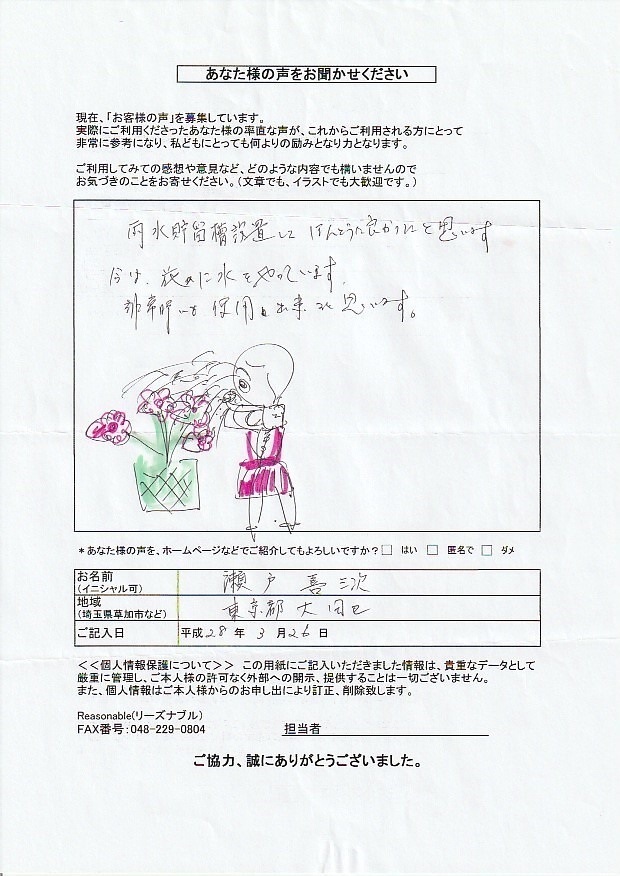 あなた様の声をお聞かせください
現在、「お客様の声」を募集しています。
実際にご利用くださったあなた様の率直な声が、これからご利用される方にとって
非常に参考になり、私どもにとっても何よりの励みとなり力となります。
ご利用してみての感想や意見など、どのような内容でも構いませんので
お気づきのことをお寄せください。（文章でも、イラストでも大歓迎です。）
雨水貯留槽設置して ほんとうに良かったと思います
今は、
に水をやっています。
非常時にも使用出来ると思います。
＊あなた様の声を、ホームページなどでご紹介してもよろしいですか？□ はい □ 匿名で □ ダメ
お名前
（イニシャル可）
瀬戸 喜三次
地域
（埼玉県草加市など）
東京都 大田区
ご記入日 平成28年 3月26日
＜＜個人情報保護について＞＞ この用紙にご記入いただきました情報は、貴重なデータとして
厳重に管理し、ご本人様の許可なく外部への開示、提供することは一切ございません。
また、個人情報はご本人様からのお申し出により訂正、削除致します。
Reasonable(リーズナブル)
FAX番号：048-229-0804 担当者
ご協力、誠にありがとうございました。